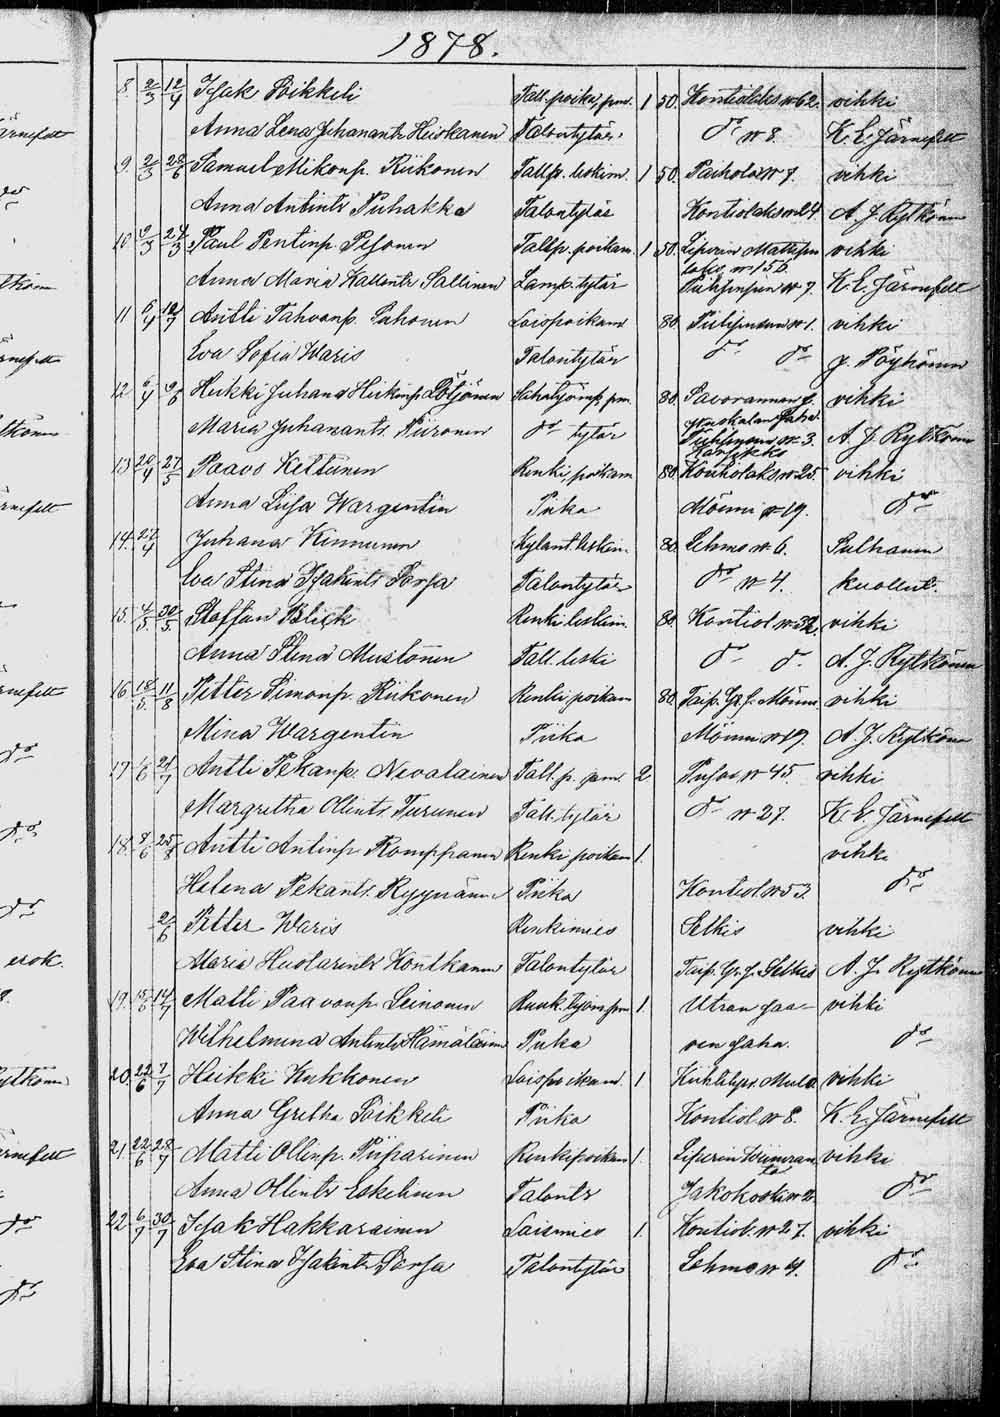 1878.
8. 2/3 12/4 Isak Poikkeli Tall. poika, pm. 1 50. Kontiolaks № 62. vihki
Anna Lena Juhanantr Huiskanen Talontytär do № 8. K. E. Järnefelt
9. 2/3 22/6 Samuel Mikonp. Riikonen Tallp. leskim. 1 50. Paihola № 7. vihki
Anna Antintr Puhakka Talontytär Kontiolaks № 24. A. J. Rytkönen
10 9/3 24/3 Paul Pentinp. Pesonen Tallp. poikam. 1 50. Liperin Mattisen vihki
№ 155.
Anna Maria Kallentr Sallinen Lamp. tytär № 7. K. E. Järnefelt
11 6/4 Antti Tahvonp. Pahonen Loispoikam 80. № 1. vihki
Eva Sofia Waris Talontytär do do J. Pöyhönen
12 6/4 9/6 Heikki Juhana Heikinp. Pöljönen pm. 80. vihki
Maria Juhanantr. Piironen do tytär № 3. A. J. Rytkönen
13 20/4 27/5 Paavo Kettunen Renki, poikam 80. Kontiolaks № 25. vihki
Anna Liisa Wargentin Piika Mönni № 19. do
14. 27/4 Juhana Kinnunen leskim. 80. Lehmo № 6. Sulhanen
Eva Stina Isakintr Porsa Talontytär do № 4. kuollut.
15. 4/5. 30/5. Staffan Blick Renki leskim. 80. Kontiol № 32. vihki
Anna Stina Mustonen Tall. leski do do. A. J. Rytkönen
16 18/5. 11/8 Petter Simonp. Riikonen Renki, poikam 80. Taip. Gr. f. Mönni vihki
Mina Wargentin Piika Mönni № 19. A. J. Rytkönen
17 21/7 Antti Pekanp. Nevalainen Tall. p. pm. 2. № 45. vihki
Margretha Ollintr. Turunen Tall. tytär do № 27. K. E. Järnefelt
18. 8/6 25/8 Antti Antinp. Romppanen Renki poikam 1. vihki
Helena Pekantr. Ryynänen Piika Kontiol. № 53. do
2/6 Petter Waris Renkimies Selkis vihki
Maria Huotarintr Kontkanen Talontytär Taip. Gr. f. Selkis A. J. Rytkönen
19. 15/6 14/7 Matti Paavonp. Leinonen pm 1. Utran Jaa- vihki
Wilhelmina Antintr Hämäläinen Piika ven saha. do
20. 22/6 7/7 Heikki Kukkonen Loispoikam. 1 vihki
Anna Gretha Poikkeli Piika Kontiol № 8. K. E. Järnefelt
21. 22/6 28/7 Matti Ollinp. Piiparinen Renkipoikam 1. Liperin vihki
Anna Ollintr Eskelinen Talontr Jakokoski № 2. do
22 6/7 30/7 Isak Hakkarainen Loismies 1. Kontiol. № 27. vihki
Eva Stina Isakintr Porsa Talontytär Lehmo № 4. do